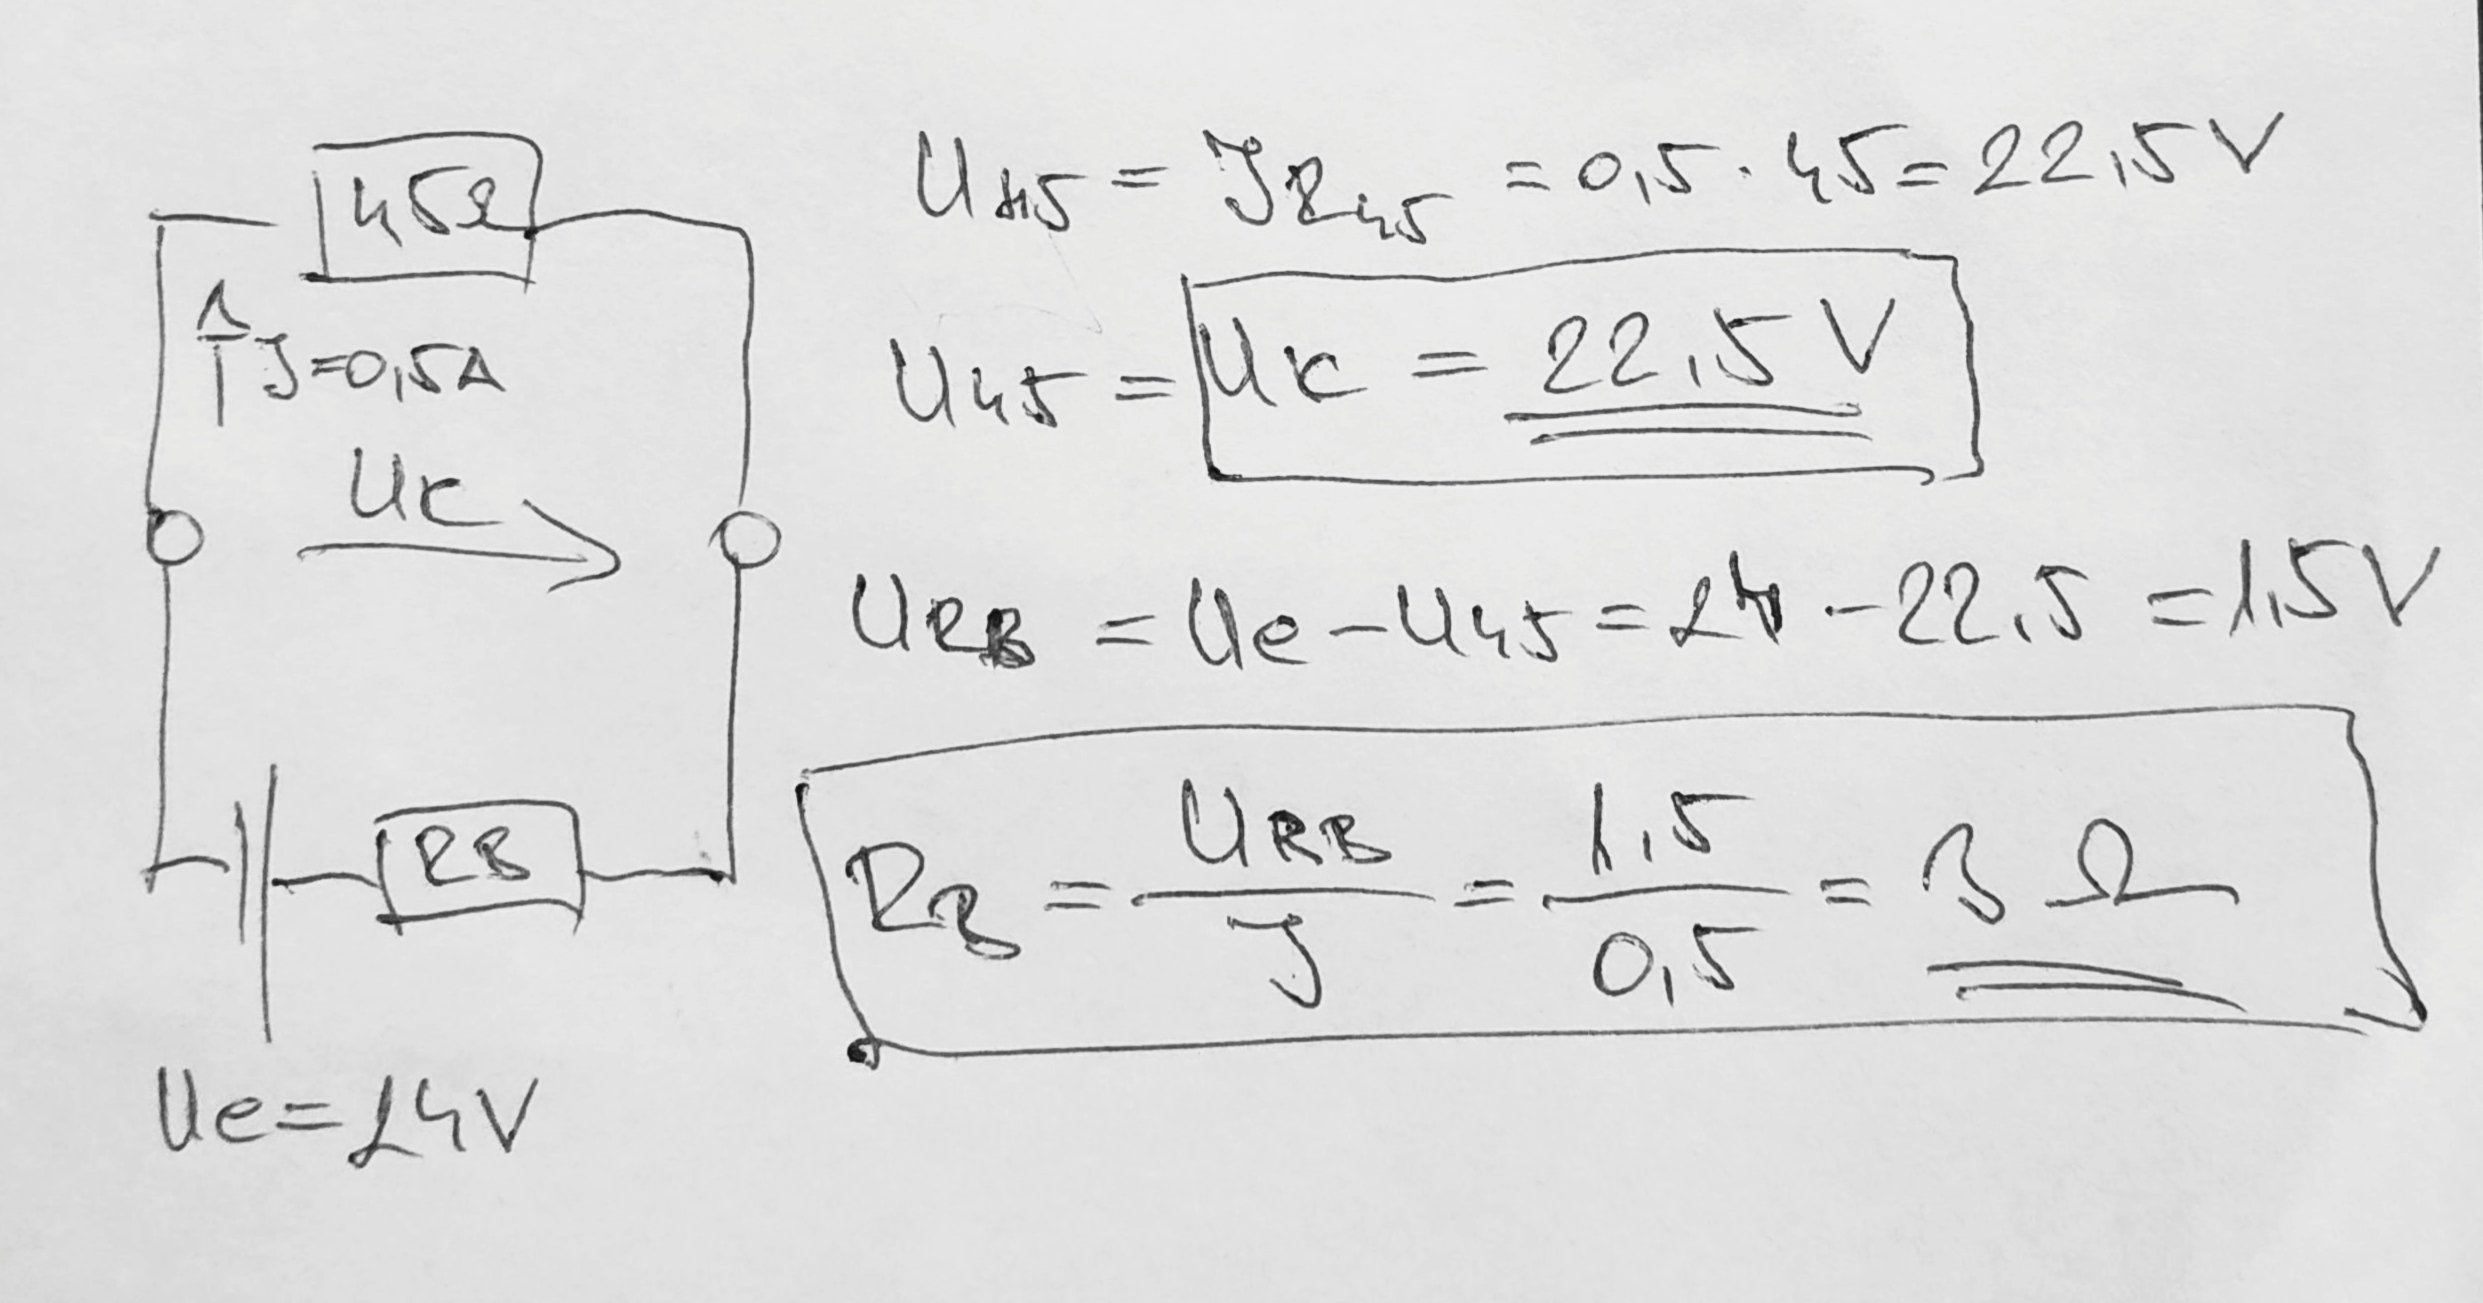 45Ω
I=0,5A
UK
RB
Ue=24V
U45 = IR45 = 0,5 · 45 = 22,5V
U45 = UK = 22,5V
URB = Ue - U45 = 24 - 22,5 = 1,5V
RB = URB / I = 1,5 / 0,5 = 3 Ω